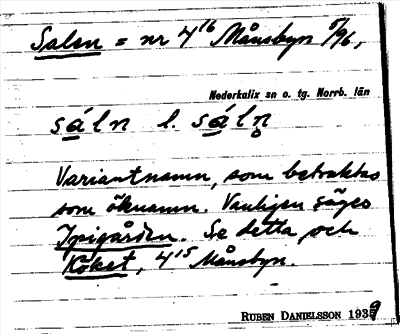 Salen = nr 4¹⁶ Månsbyn 5/96,
Nederkalix sn o. tg. Norrb. län
sáln l. sáln̥
Variantnamn, som betraktas
som öknamn. Vanligen säges
Spigården. Se detta och
Köket, 4¹⁵ Månsbyn.
RUBEN DANIELSSON 1939